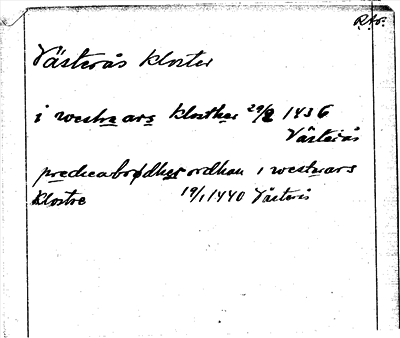 RAp.
Västerås kloster
i westra ars klosther 29/2 1436
Västerås
predicabrødher ordhan i westrars
klostre 19/1 1440 Västerås